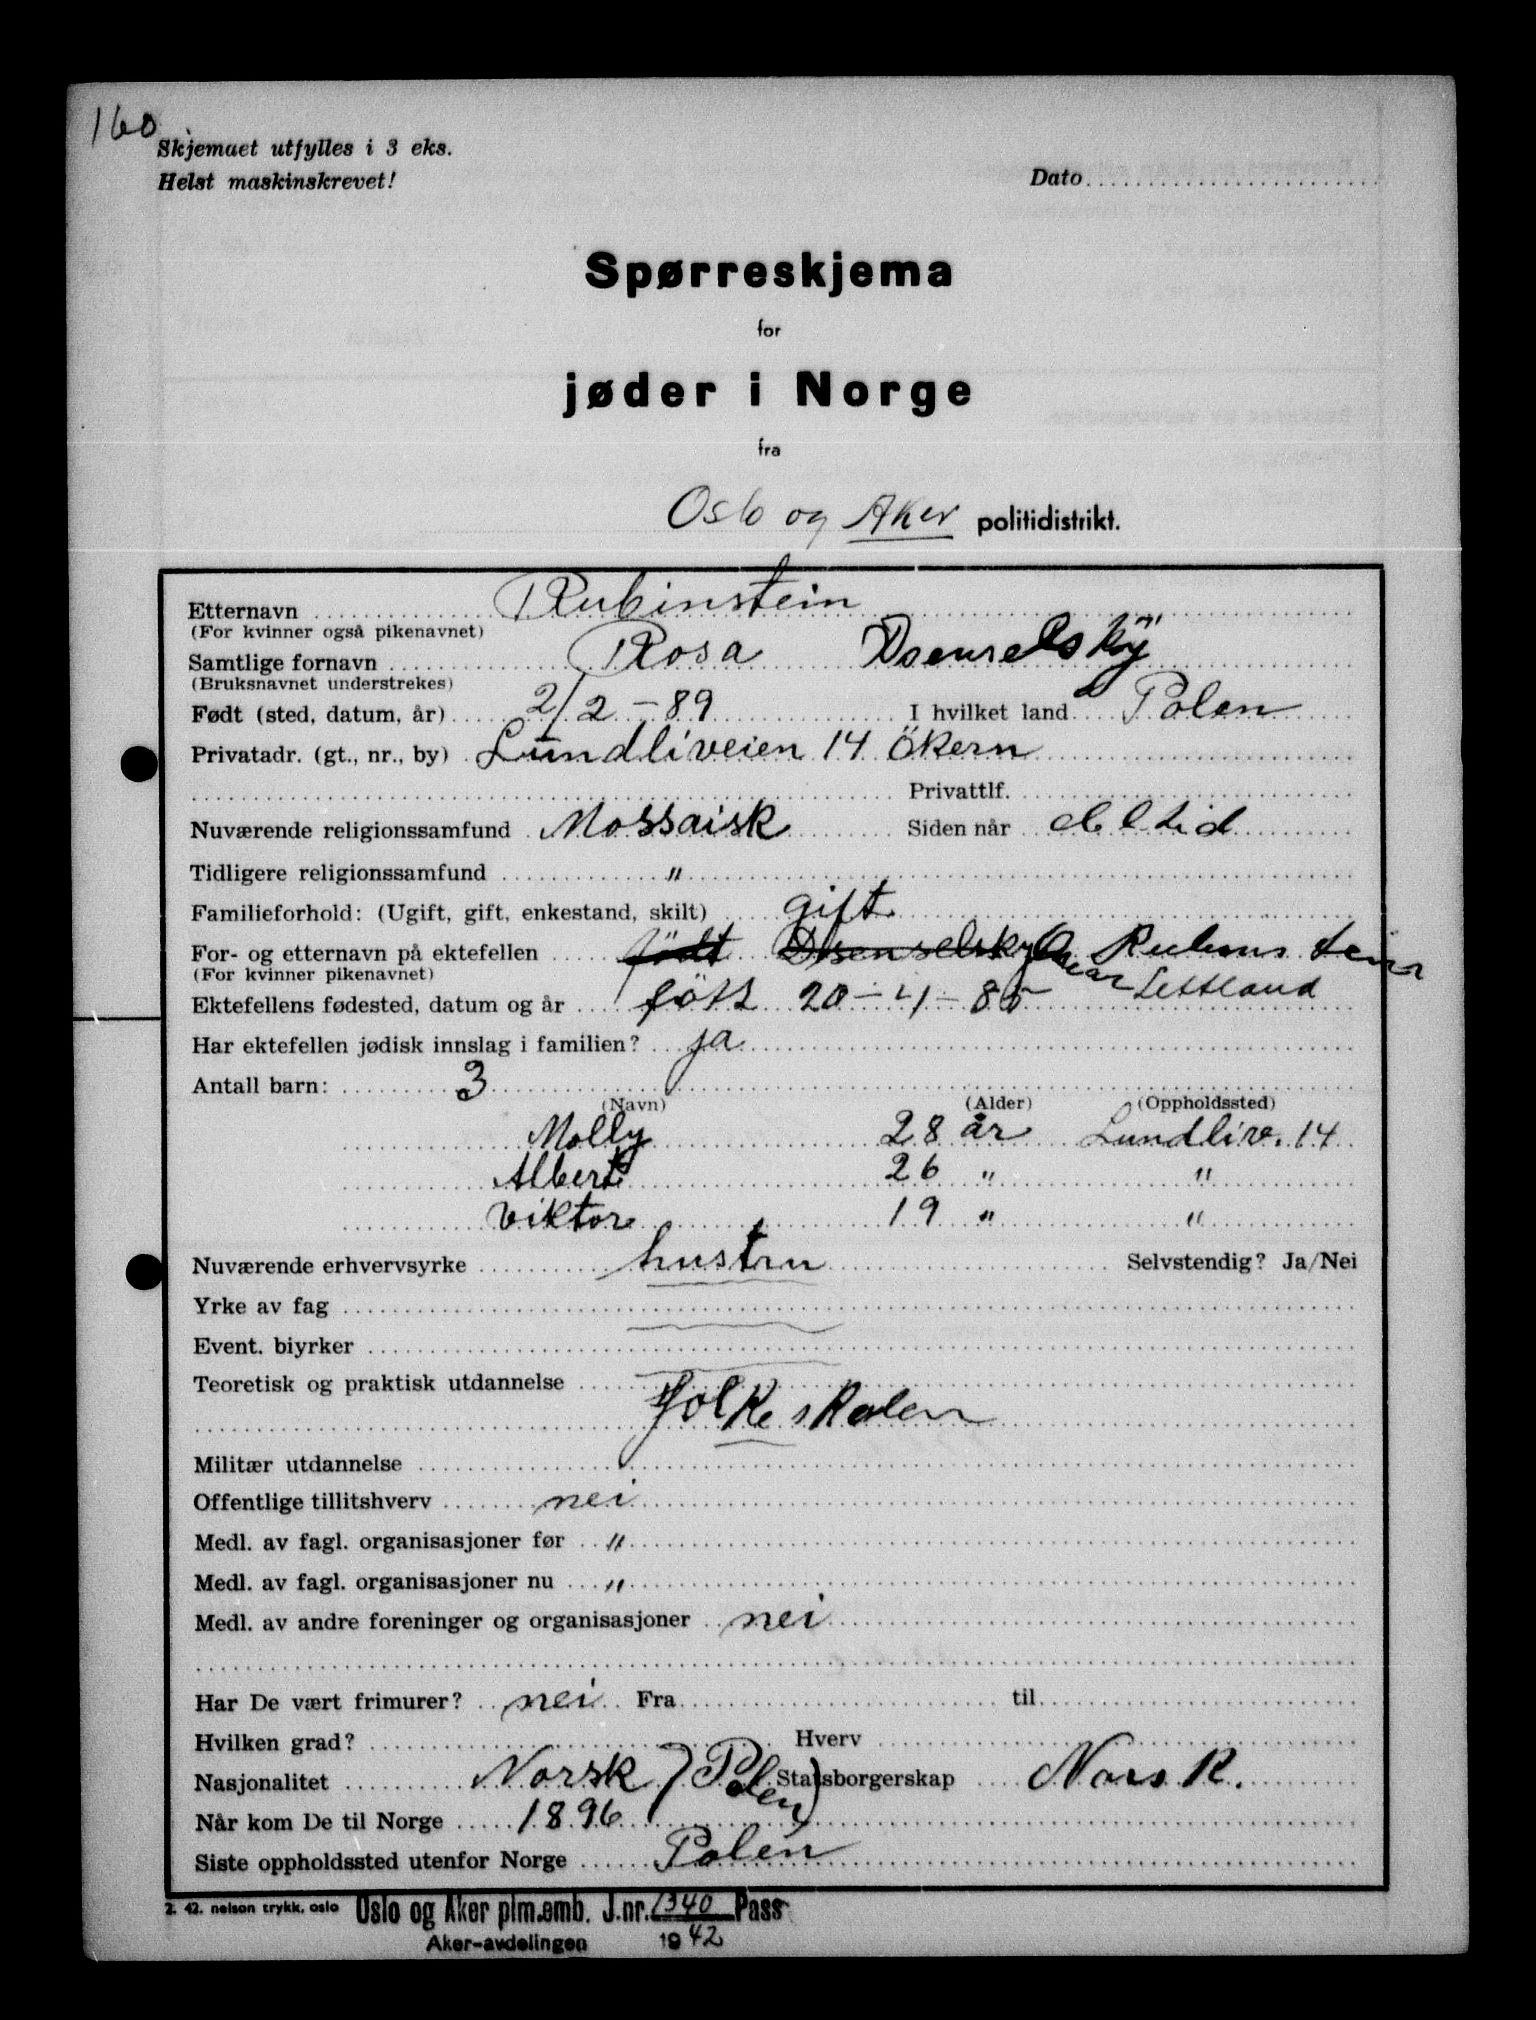 160
Skjemaet utfylles i 3 eks.
Helst maskinskrevet! Dato
Spørreskjema
for
jøder i Norge
fra
Oslo og Aker politidistrikt.
Etternavn Rubinstein
(For kvinner også pikenavnet)
Samtlige fornavn Rosa Dsenselsky
(Bruksnavnet understrekes)
Født (sted, datum, år) 2/2-89 I hvilket land Polen
Privatadr. (gt., nr., by) Lundliveien 14 Økern
Privattlf.
Nuværende religionssamfund Mossaisk Siden når altid
Tidligere religionssamfund "
Familieforhold: (Ugift, gift, enkestand, skilt) gift
For- og etternavn på ektefellen födt Dsenselsky Rubinstein
(For kvinner pikenavnet)
Ektefellens fødested, datum og år född 20-4-85 Lettland
Har ektefellen jødisk innslag i familien? ja
Antall barn: 3
(Navn) (Alder) (Oppholdssted)
Molly 28 år Lundliv. 14
Albert 26 " "
Viktor 19 " "
Nuværende erhvervsyrke hustru Selvstendig? Ja/Nei
Yrke av fag
Event. biyrker
Teoretisk og praktisk utdannelse
Folkeskolen
Militær utdannelse
Offentlige tillitshverv nei
Medl. av fagl. organisasjoner før "
Medl. av fagl. organisasjoner nu "
Medl. av andre foreninger og organisasjoner nei
Har De vært frimurer? nei Fra til
Hvilken grad? Hverv
Nasjonalitet Norsk (Polen) Statsborgerskap Norsk.
Når kom De til Norge 1896
Siste oppholdssted utenfor Norge Polen
2. 42. nelson trykk. oslo Oslo og Aker plm.emb. J.nr. 1340 Pass
Aker-avdelingen 1942